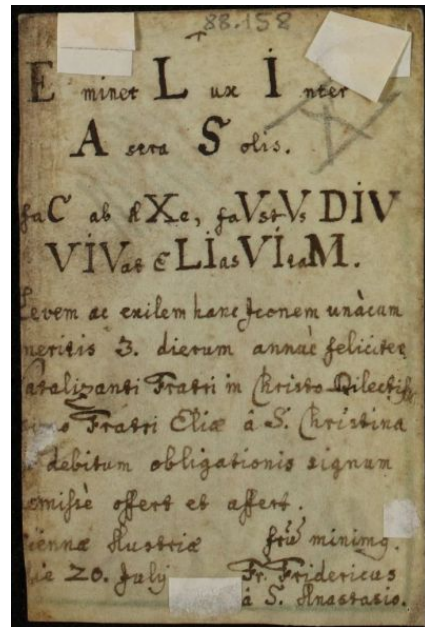 88.158
E minet L ux I nter
A stra S olis.
faC ab AXe, faVstVs DIV
VIVat ELIas VItaM.
Levem ac exilem hanc Iconem unàcum
meritis 3. dierum annuè feliciter
Natalizanti Fratri in Christo Dilectiss
imo Fratri Eliæ à S. Christina
debitum obligationis signum
offert et affert.
Viennæ Austriæ frũ minimq.
die 20. July Fr. Fridericus
à S. Anastasio.